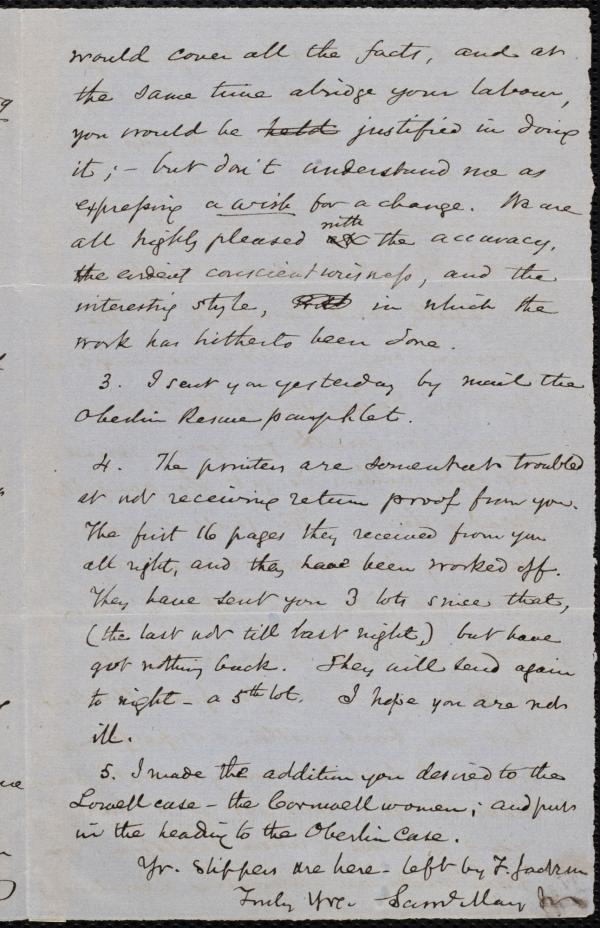 would cover all the facts, and at
the same time abridge your labour,
you would be held justified in doing
it; - but don't understand me as
expressing a wish for a change. We are
all highly pleased with the accuracy,
the evident conscientiousness, and the
interesting style, in which the
work has hitherto been done.
3. I sent you yesterday by mail the
Oberlin Rescue pamphlet.
4. The printers are somewhat troubled
at not receiving return proof from you.
The first 16 pages they received from you
all right, and they have been worked off.
They have sent you 3 lots since that,
(the last not till last night,) but have
got nothing back. They will send again
to night - a 5th lot. I hope you are not
ill.
5. I made the addition you desired to the
Lowell case - the Cornwell women; and put
in the heading to the Oberlin Case.
Yr. slippers are here - left by F. Jackson
Truly Yrs. Saml. May Jr.